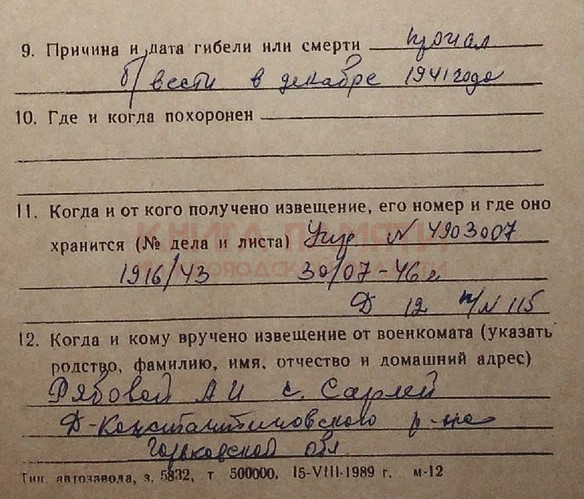 9. Причина и дата гибели или смерти пропал
б/вести в декабре 1941 года
10. Где и когда похоронен
11. Когда и от кого получено извещение, его номер и где оно
хранится (№ дела и листа) N 4903007
1916/43 30/07-46г
Д 12 п/N 115
КНИГА ПАМЯТИ
12. Когда и кому вручено извещение от военкомата (указать
родство, фамилию, имя, отчество и домашний адрес)
Рябовой А И с. Сарлей
Д-Константиновского р-на
Горьковской обл
Тип. автозавода, з. 5832, т 500000. 15-VIII-1989 г. м-12